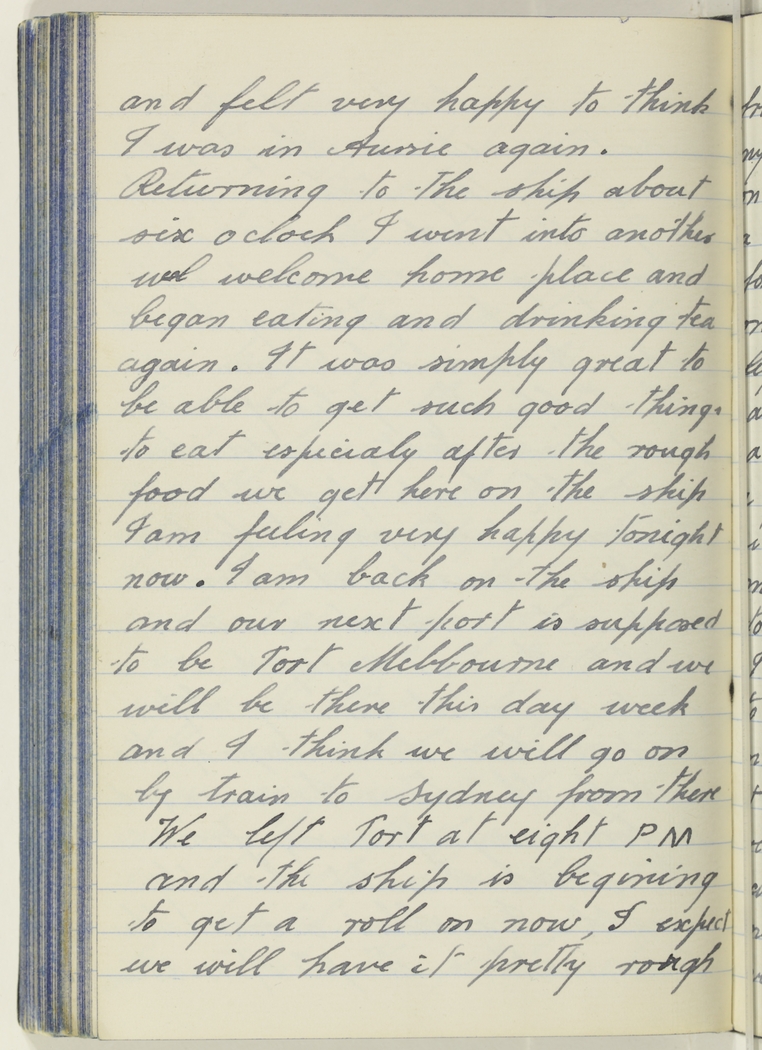 and felt very happy to think
I was in Aussie again.
Returning to the ship about
six oclock I went into another
wel welcome home place and
began eating and drinking tea
again. It was simply great to
be able to get such good things
to eat especialy after the rough
food we get here on the ship
I am feeling very happy tonight
now. I am back on the ship
and our next port is supposed
to be Port Melbbourne and we
will be there this day week
and I think we will go on
by train to Sydney from there
We left Port at eight PM
and the ship is begining
to get a roll on now, I expect
we will have it pretty rough